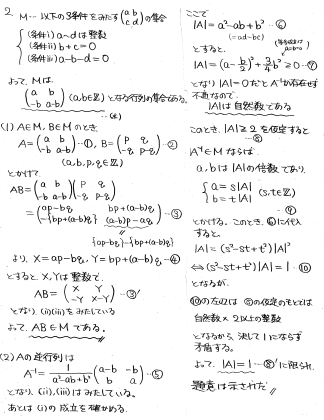 2 M… 以下の3条件をみたす(a b / c d)の集合
(条件i) a~dは整数
(条件ii) b+c=0
(条件iii) a-b-d=0
よって Mは.
(a b / -b a-b) (a,b∈ℤ) となる行列の集合である.
(1) A∈M, B∈Mのとき
A=(a b / -b a-b)…①, B=(p q / -q p-q)…②
(a,b,p,q∈ℤ)
とかけて
AB=(a b / -b a-b)(p q / -q p-q)
=(ap-bq bp+(a-b)q / -{bp+(a-b)q} (a-b)p-aq)…③
{ap-bq}-{bp+(a-b)q}
より, X=ap-bq, Y=bp+(a-b)q…④
とすると X,Yは整数で,
AB=(X Y / -Y X-Y)…③'
となり (ii)(iii)をみたしている
よって, AB∈Mである.
(2) Aの逆行列は
A⁻¹=1/(a²-ab+b²)(a-b -b / b a)…⑤
となり, (ii),(iii)はみたしている.
あとは(i)の成立を確かめる.
ここで
|A|=a²-ab+b²…⑥
(=ad-bc)
とすると,
|A|=(a-b/2)²+3/4b²≧0…⑦
となり |A|=0だと A⁻¹が存在せず
不適なので
|A|は自然数である
このとき, |A|≧2を仮定すると
…⑧
A⁻¹∈Mならば
a,bは|A|の倍数であり,
{a=s|A|
b=t|A| (s,t∈ℤ)
…⑨
とかける. このとき, ⑥に代入
すると,
|A|=(s²-st+t²)|A|²
⇔(s²-st+t²)|A|=1…⑩
となるが,
⑩の左辺は ⑧の仮定のもとでは
自然数×2以上の整数
となるから, 決して1にならず
矛盾する.
よって, |A|=1…⑧'に限られ,
題意は示された